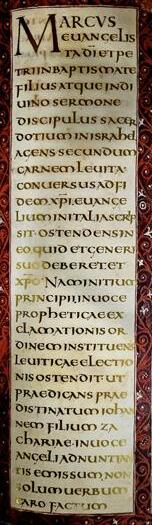 MARCVS
EUANGELIS
TADIETPE
TRIINBAPTISMATE
FILIUSATQUEINDI
UINOSERMONE
DISCIPULUSSACER
DOTIUMINISRAHEL
AGENSSECUNDUM
CARNEMLEUITA·
CONUERSUSADFI
DEMXPIEUANGE
LIUMINITALIASCRIP
SIT·OSTENDENSIN
EOQUIDETGENERI
SUODEBERETET
XPO·NAMINITIUM
PRINCIPIIINUOCE
PROPHETICAEEX
CLAMATIONISOR
DINEMINSTITUENS
LEUITICAEELECTIO
NISOSTENDITUT
PRAEDICANSPRAE
DISTINATUMIOHAN
NEMFILIUMZA
CHARIAE·INUOCE
ANGELIADNUNTIAN
TISEMISSUMNON
SOLUMUERBUM
CAROFACTUM